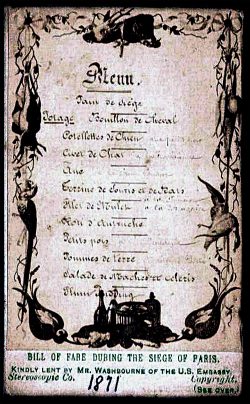 Menu.
Pain de siège
Potage Bouillon de Cheval
Cotellettes de Chien
Civet de Chat
Ane
Terrine de Souris et de Rats
Filet de Mulet
à la
Rôti d'Autruche
Petits pois
Pommes de terre
Salade de Maches et Céleris
Plum Pudding
BILL OF FARE DURING THE SIEGE OF PARIS.
KINDLY LENT BY MR. WASHBOURNE OF THE U.S. EMBASSY.
Stereoscopic Co. 1871 Copyright.
(SEE OVER.)